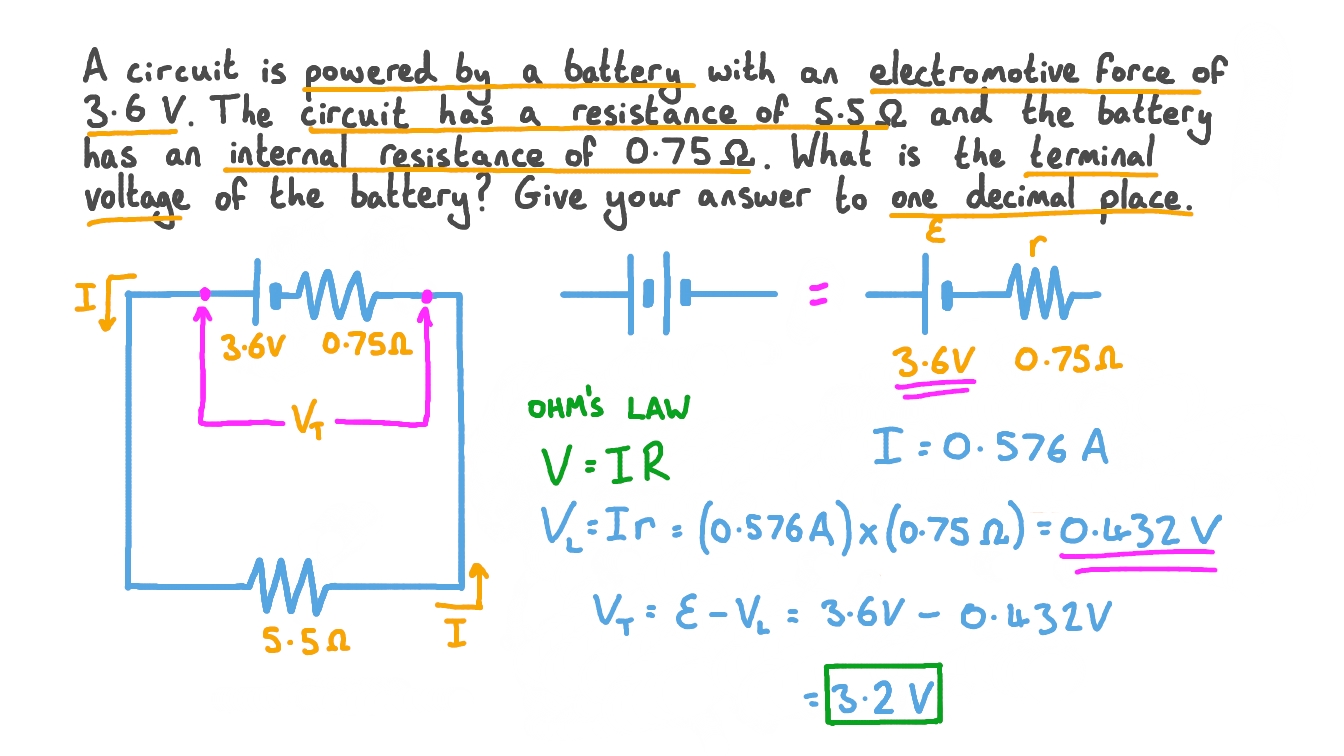 A circuit is powered by a battery with an electromotive force of
3.6 V. The circuit has a resistance of 5.5Ω and the battery
has an internal resistance of 0.75Ω. What is the terminal
voltage of the battery? Give your answer to one decimal place.
ε r
I
3.6V 0.75Ω
=
3.6V 0.75Ω
V_T
OHM'S LAW
I = 0.576 A
V = IR
V_L = Ir = (0.576A) x (0.75 Ω) = 0.432 V
V_T = ε - V_L = 3.6V - 0.432V
5.5Ω
I
= 3.2 V